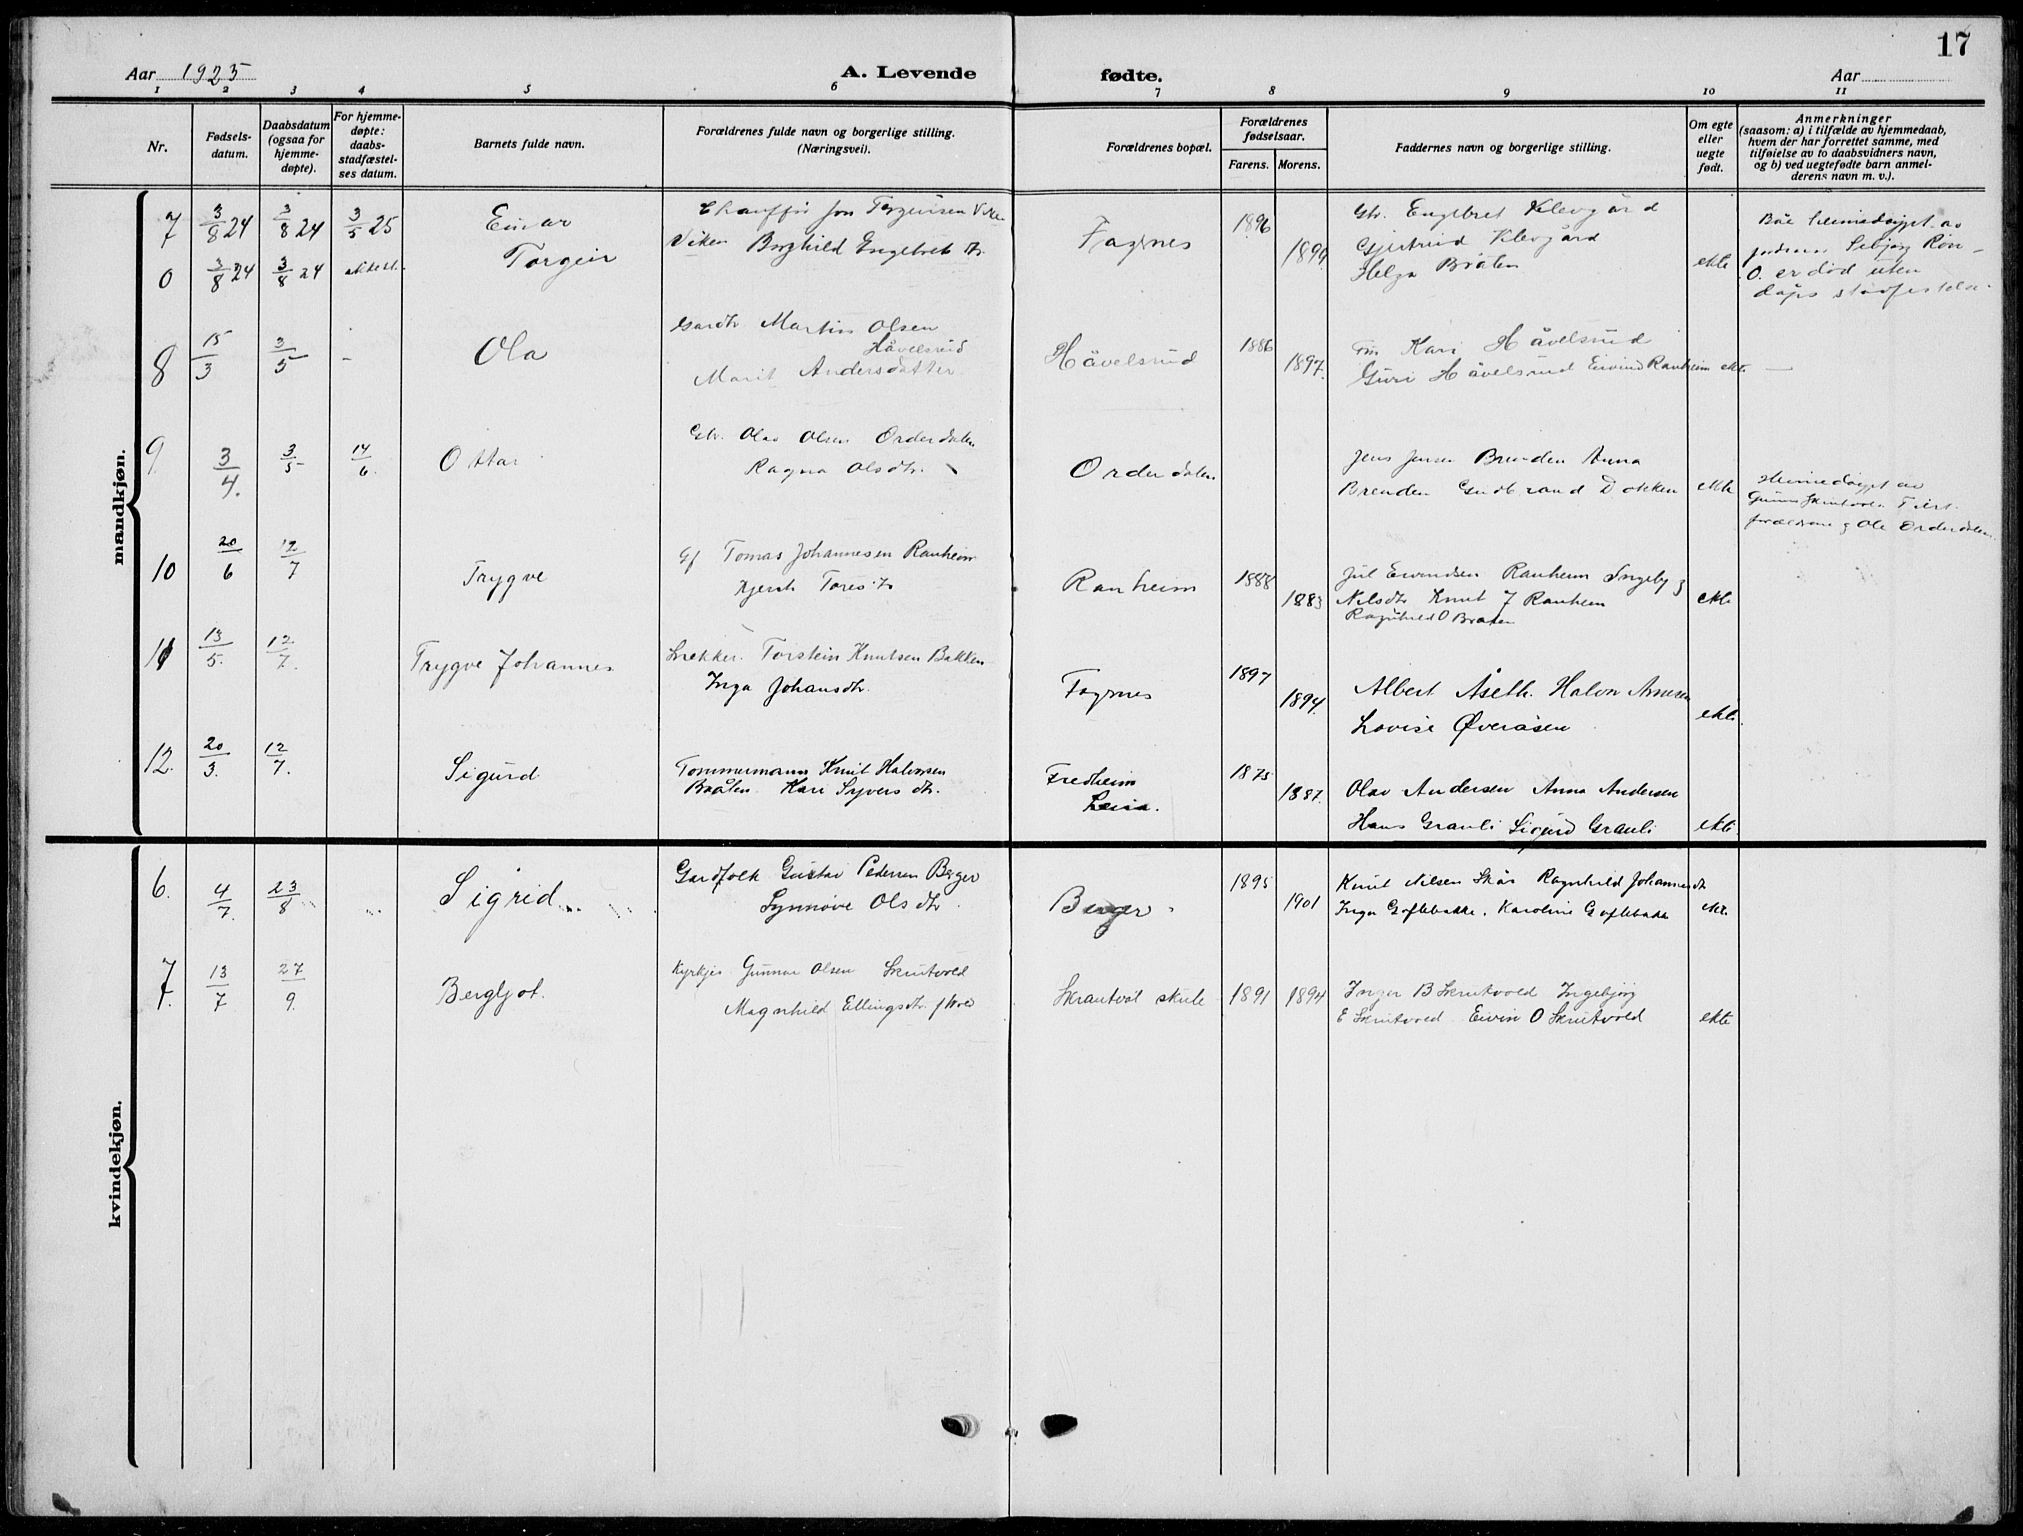 17
Aar 1925
A. Levende fødte.
Aar
1 2 3 4 5 6 7 8 9 10 11
Nr.
Fødsels-
datum.
Daabsdatum
(ogsaa for
hjemme-
døpte).
For hjemme-
døpte:
daabs-
stadfæstel-
ses datum.
Barnets fulde navn.
Forældrenes fulde navn og borgerlige stilling.
(Næringsvei).
Forældrenes bopæl.
Forældrenes
fødselsaar.
Farens. Morens.
Faddernes navn og borgerlige stilling.
Om egte
eller
uegte
født.
Anmerkninger
(saasom: a) i tilfælde av hjemmedaab,
hvem der har forrettet samme, med
tilføielse av to daabsvidners navn,
og b) ved uegtefødte barn anmel-
derens navn m. v.).
mandkjøn.
7 3/8 24 3/8 24 3/5 25 Einar
0 3/8 24 3/8 24 Torgeir
Viken Borghild Engelbret dtr.
Fagernes
1896 1899
Engebret Klevgård
Gjertrud Klevgård
Helga Bråten
ekte
O. er død uten
8 15/3 3/5 - Ola
Gardbr Martin Olsen
Håvelsrud
Marit Andersdatter
Håvelsrud
1886 1897.
Kari Håvelsrud
Guri Håvelsrud Eivind Ranheim ekt.
9 3/4. 3/5 14/6. Ottar
Gbr. Olav Olsen Orderdalen
Ragna Olsdtr.
Orderdalen
Jens Jensen Brenden Anna
Brenden Gudbrand Dokken
ekte
Heimedøypt av
foreldrene g Ole Orderdalen
10 20/6 12/7 Trygve
Gf Tomas Johannesen Ranheim
Ranheim
1888 1883
Ranheim Ingebj g
Nilsdtr Knut J Ranheim
Ragnhild O Bråten
ekte
11 13/5. 12/7. Trygve Johannes
Snekker. Torstein Knutsen Bakken
Inga Johansdtr.
Fagernes
1897 1894.
Albert Åseth. Halvor Arnesen
Lovise Øveråsen
ekte.
12. 20/3. 12/7. Sigurd
Tømmermann Knut Halvorsen
Bråten. Kari Syvers dtr.
Fredheim
Leira.
1875 1887.
Olav Andersen Anna Andersen
Hans Granli Sigurd Granli
ekte.
kvindekjøn.
6. 4/7. 23/8 Sigrid
Gardfolk Gustav Pedersen Berger
Synnøve Olsdtr.
Berger
1895 1901
Knut Nilsen Skår Ragnhild Johannesdtr
Inga Goflebakke. Karoline Goflebakk
ekte.
7. 13/7 27/9. Bergljot.
Kyrkjes Gunnar Olsen Skrutvold
Magnhild Ellingsdtr. f Wold
Skrautvål skule
1891 1894
Inger B Skrutvold Ingebjørg
E Skrutvold Eivin O Skrutvold
ekte